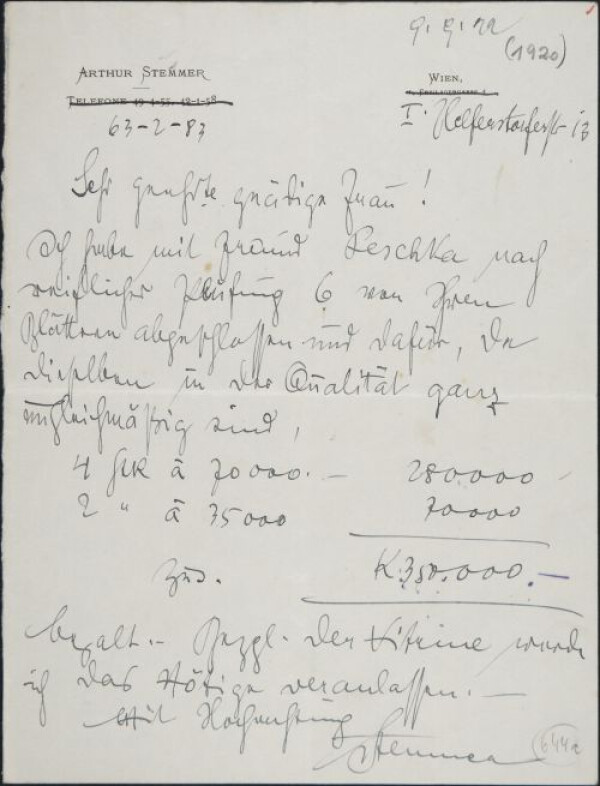 9. 9. 22
(1920)
ARTHUR STEMMER
WIEN,
TELEFONE 19-1-55, 19-1-58
63-2-83
I. Helferstorferstr 13
Sehr geehrte gnädige Frau!
Ich habe mit Freund Leschka nach
reiflicher Prüfung 6 von Ihren
Blättern abgeschlossen und dafür, da
dieselben in der Qualität ganz
ungleichmäßig sind,
4 Stk à 70000.— 280.000
2 " à 35000 70000
K. 350.000.—
zus.
bezalt.— Bezgl. der Vitrine werde
ich das Nötige veranlassen.—
Mit Hochachtung
Stemmer
644a